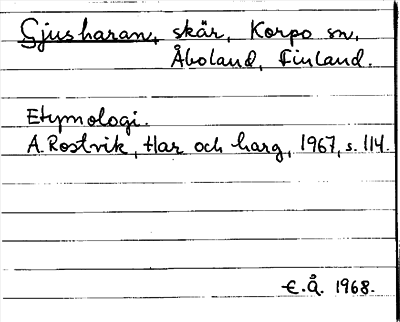 Gjusharan, skär, Korpo sn,
Åboland, Finland.
Etymologi.
A. Rostvik, Har och harg, 1967, s. 114.
E.Å. 1968.